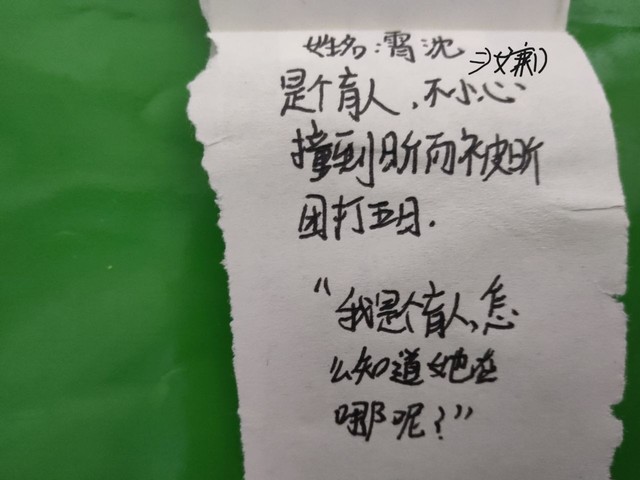 姓名：霄沈
是个盲人，不小心
撞到昕而被昕
团打五日.
“我是个盲人，怎
么知道她在
哪呢？”